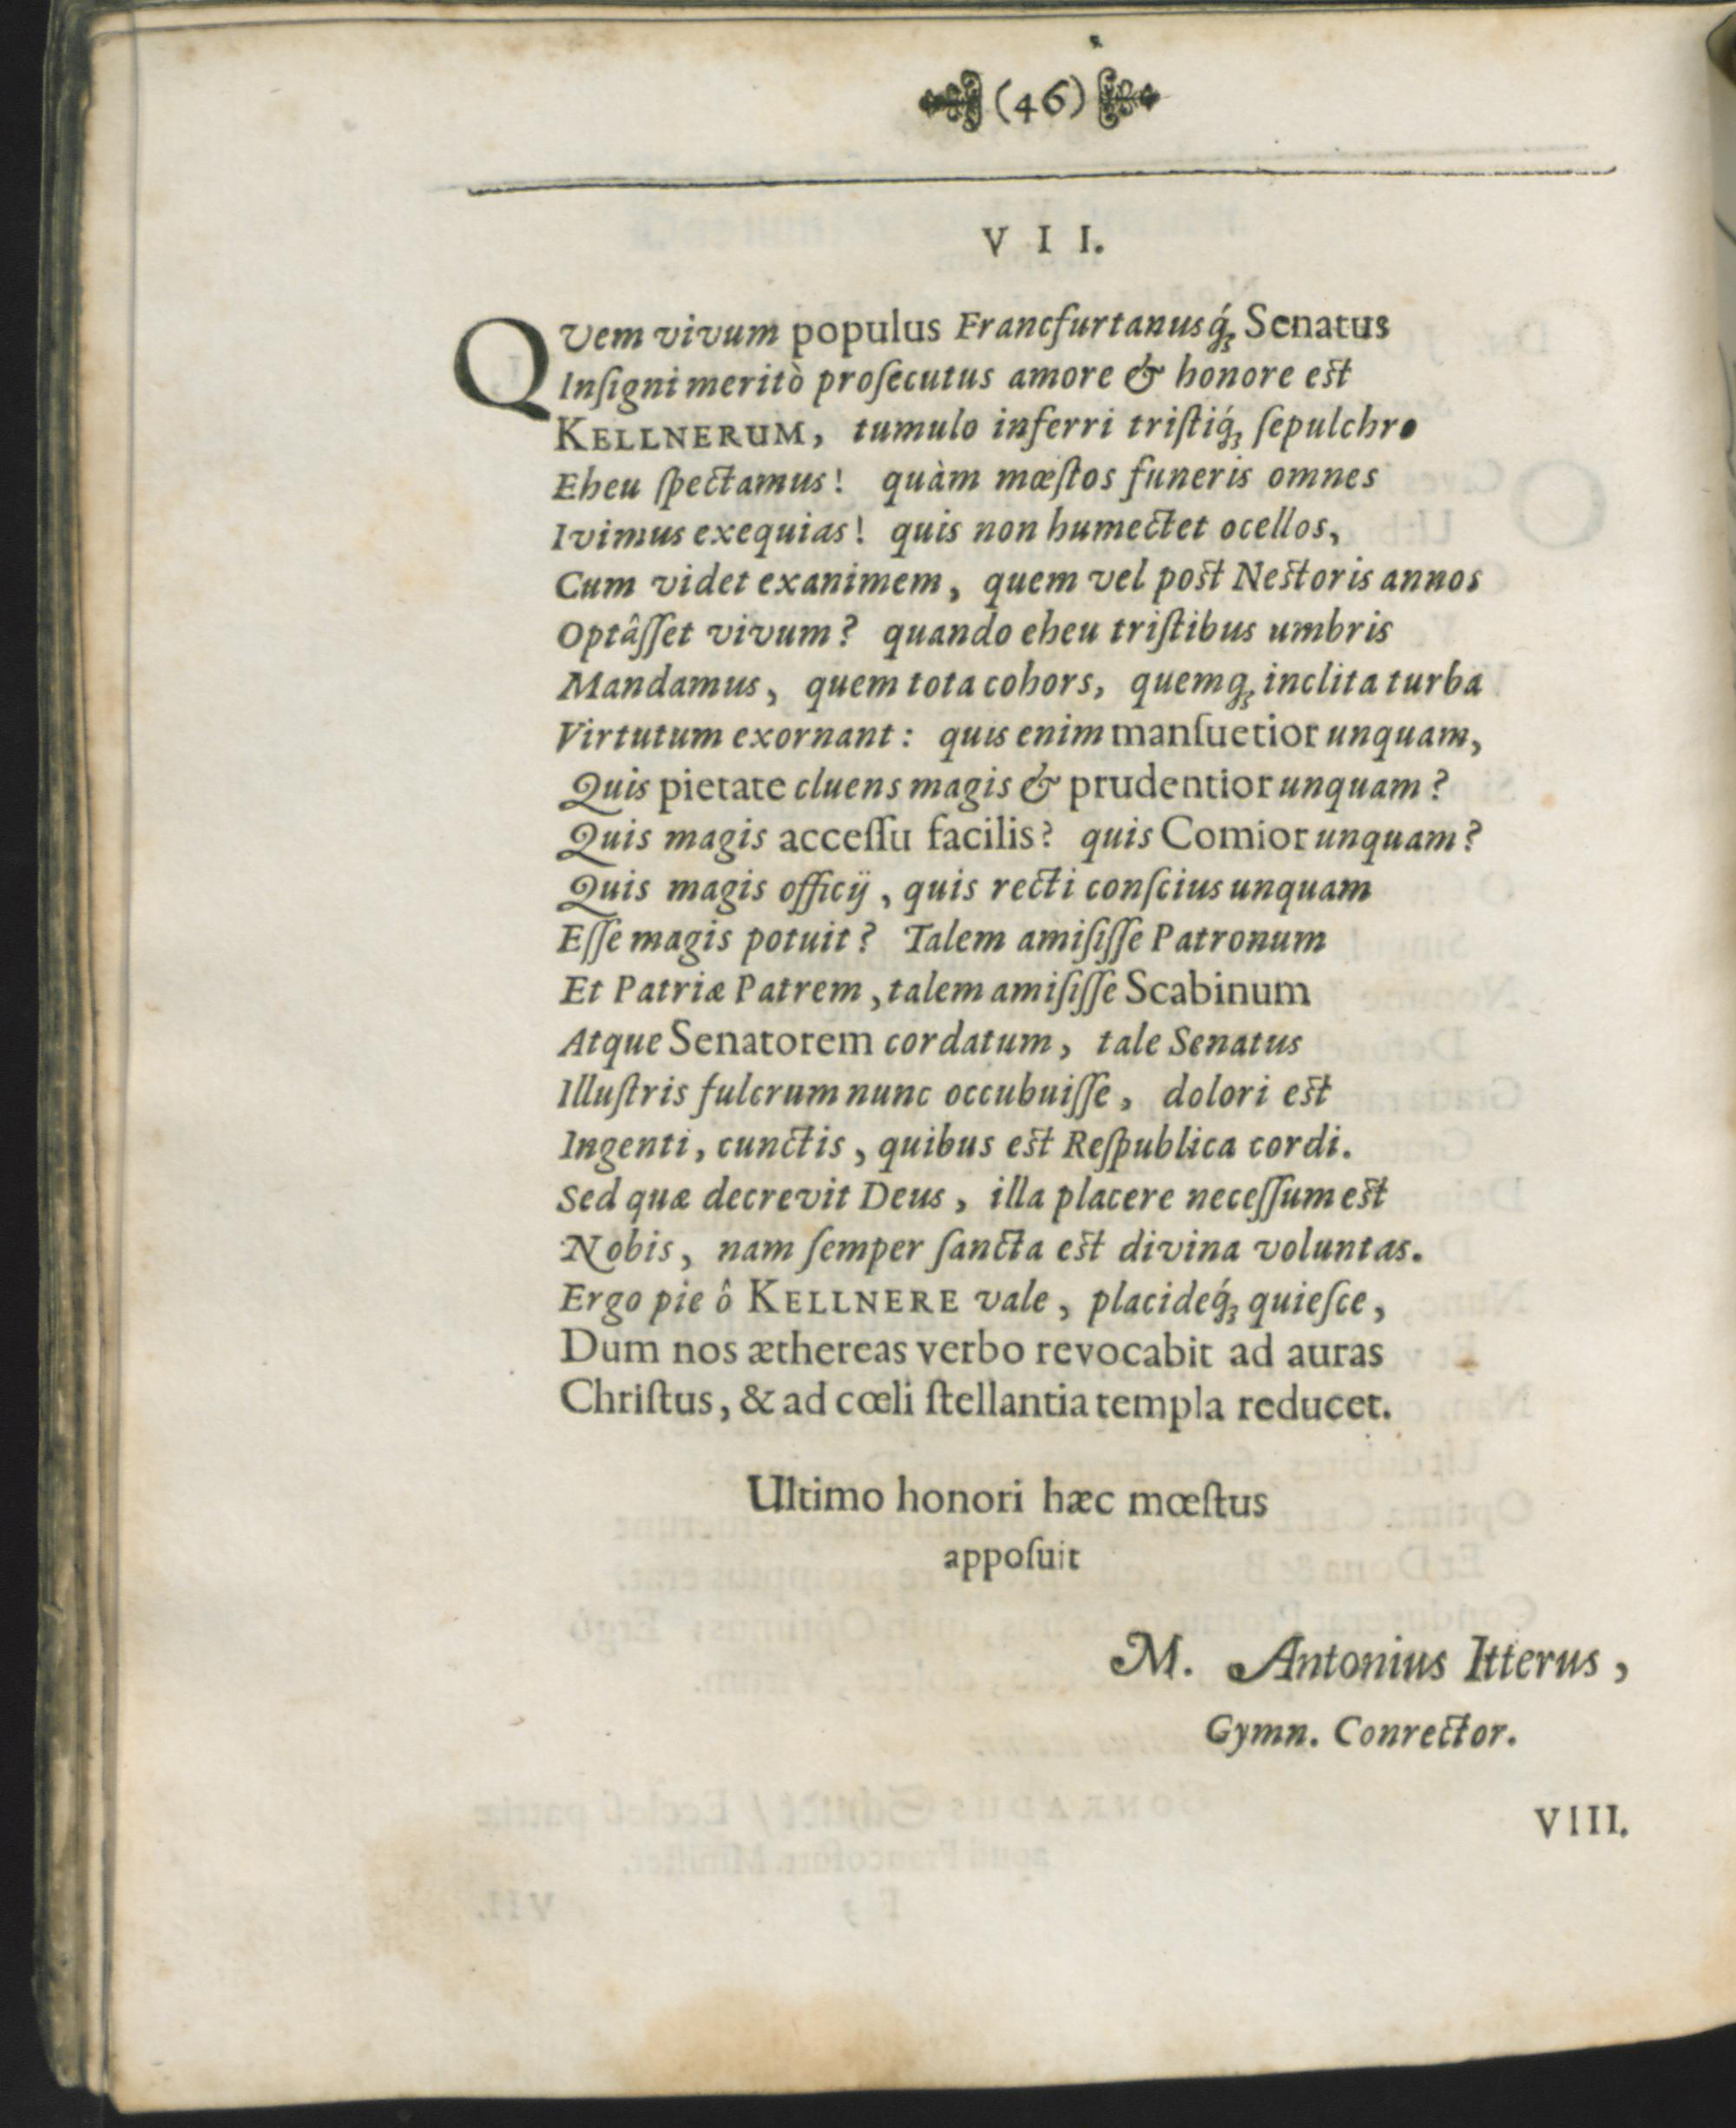 (46)
VII.
QVem vivum populus Francfurtanusq́; Senatus
Inſigni meritò proſecutus amore & honore est
KELLNERUM, tumulo inferri triſtiq́; ſepulchro
Eheu ſpectamus! quàm mœſtos funeris omnes
Ivimus exequias! quis non humectet ocellos,
Cum videt exanimem, quem vel post Nestoris annos
Optâſſet vivum? quando eheu triſtibus umbris
Mandamus, quem tota cohors, quemq; inclita turba
Virtutum exornant: quis enim manſuetior unquam,
Quis pietate cluens magis & prudentior unquam?
Quis magis acceſſu facilis? quis Comior unquam?
Quis magis officij, quis recti conſcius unquam
Eſſe magis potuit? Talem amiſiſſe Patronum
Et Patriæ Patrem, talem amiſiſſe Scabinum
Atque Senatorem cordatum, tale Senatus
Illuſtris fulcrum nunc occubuiſſe, dolori est
Ingenti, cunctis, quibus est Reſpublica cordi.
Sed quæ decrevit Deus, illa placere neceſſum est
Nobis, nam ſemper ſancta est divina voluntas.
Ergo pie ô KELLNERE vale, placideq́; quieſce,
Dum nos æthereas verbo revocabit ad auras
Chriſtus, & ad cœli ſtellantia templa reducet.
Ultimo honori hæc mœſtus
appoſuit
M. Antonius Itterus,
Gymn. Conrector.
VIII.